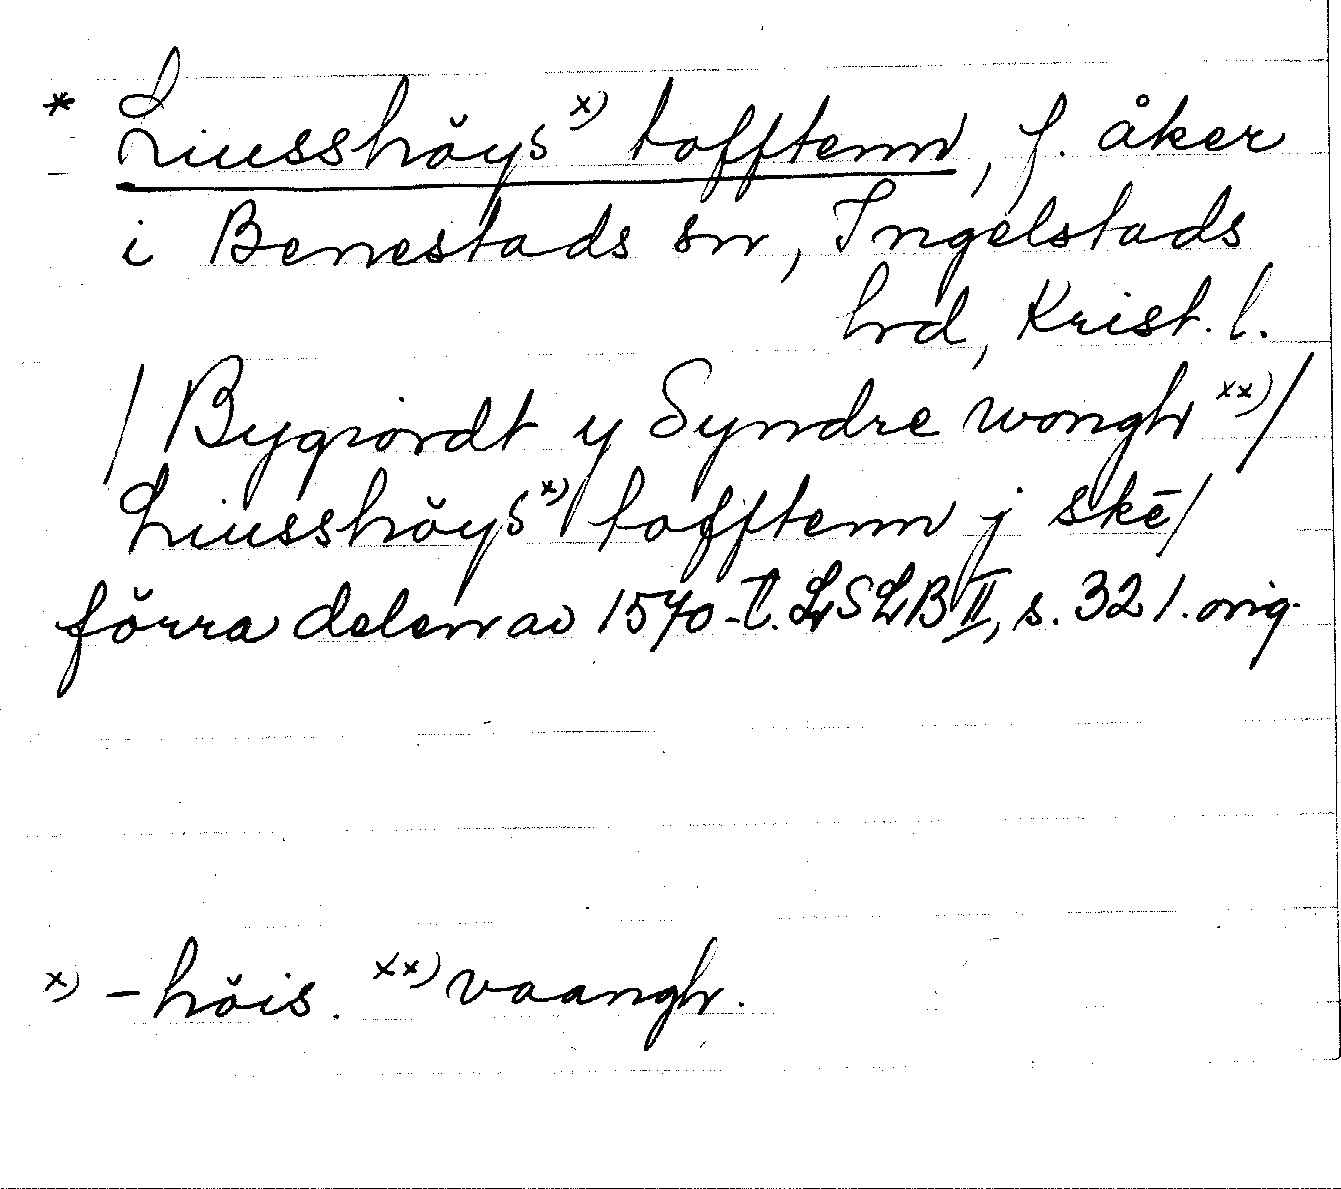 * Liusshöys x) tofftenn, f. åker
i Benestads sn, Ingelstads
hrd, Krist. l.
/ Bygiordt y Syndre wongh xx) /
Liusshöys x) tofftenn j skē /
förra delen av 1570-t. LSLB II, s. 321. orig.
x) -höis. xx) vaangh.